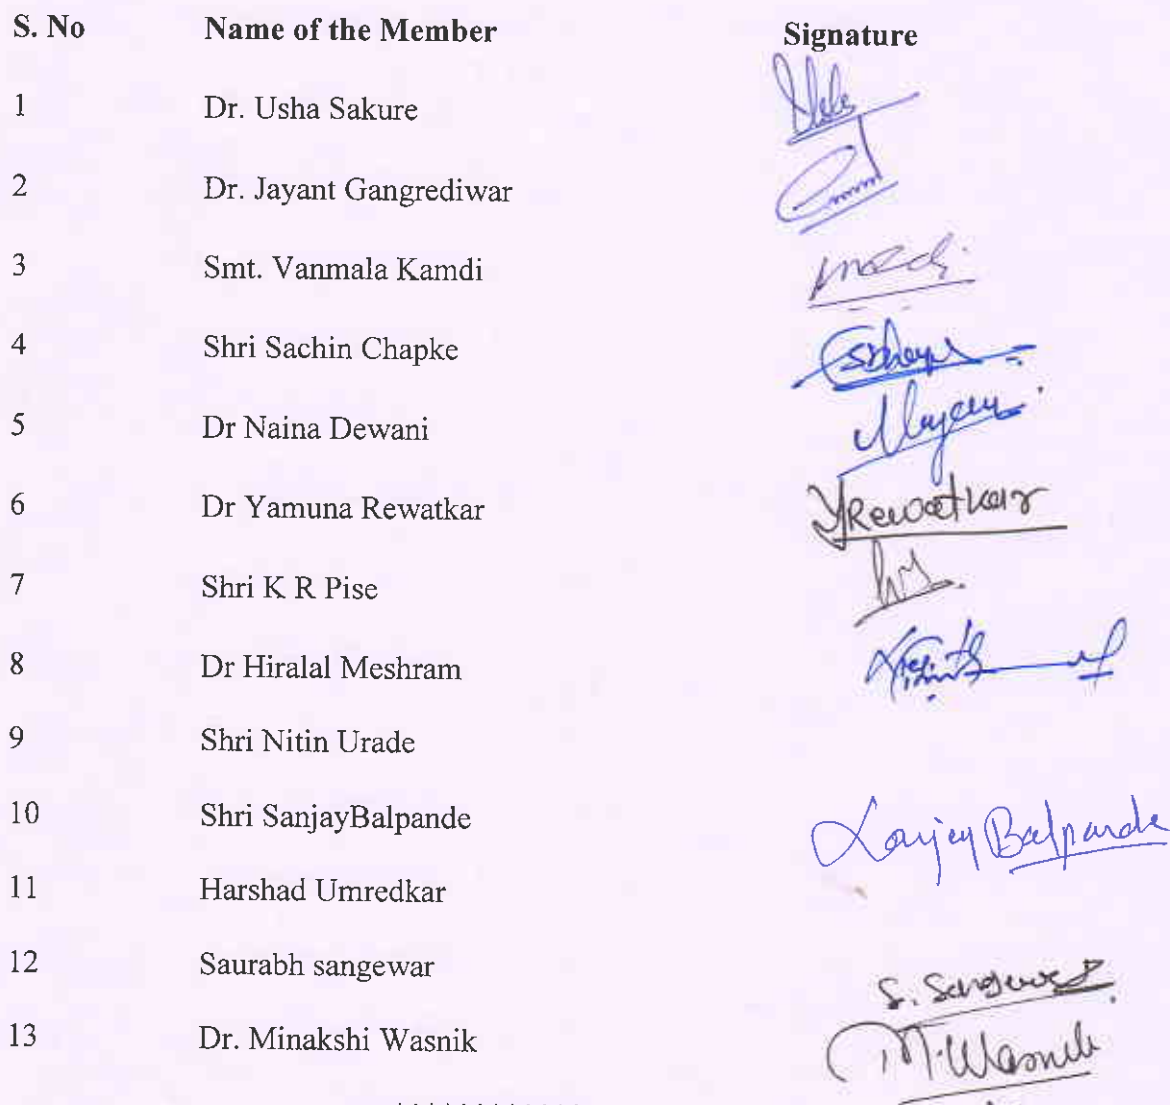 S. No Name of the Member Signature
1 Dr. Usha Sakure
2 Dr. Jayant Gangrediwar
3 Smt. Vanmala Kamdi
4 Shri Sachin Chapke
5 Dr Naina Dewani
6 Dr Yamuna Rewatkar YRewatkar
7 Shri K R Pise
8 Dr Hiralal Meshram
9 Shri Nitin Urade
10 Shri SanjayBalpande Sanjay Balpande
11 Harshad Umredkar
12 Saurabh sangewar S. Sangewar
13 Dr. Minakshi Wasnik M. Wasnik